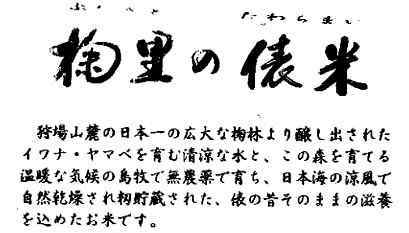 たわらまい
椈里の俵米
狩場山麓の日本一の広大な椈林より醸し出された
イワナ・ヤマベを育む清涼な水と、この森を育てる
温暖な気候の島牧で無農薬で育ち、日本海の涼風で
自然乾燥され籾貯蔵された、俵の昔そのままの滋養
を込めたお米です。